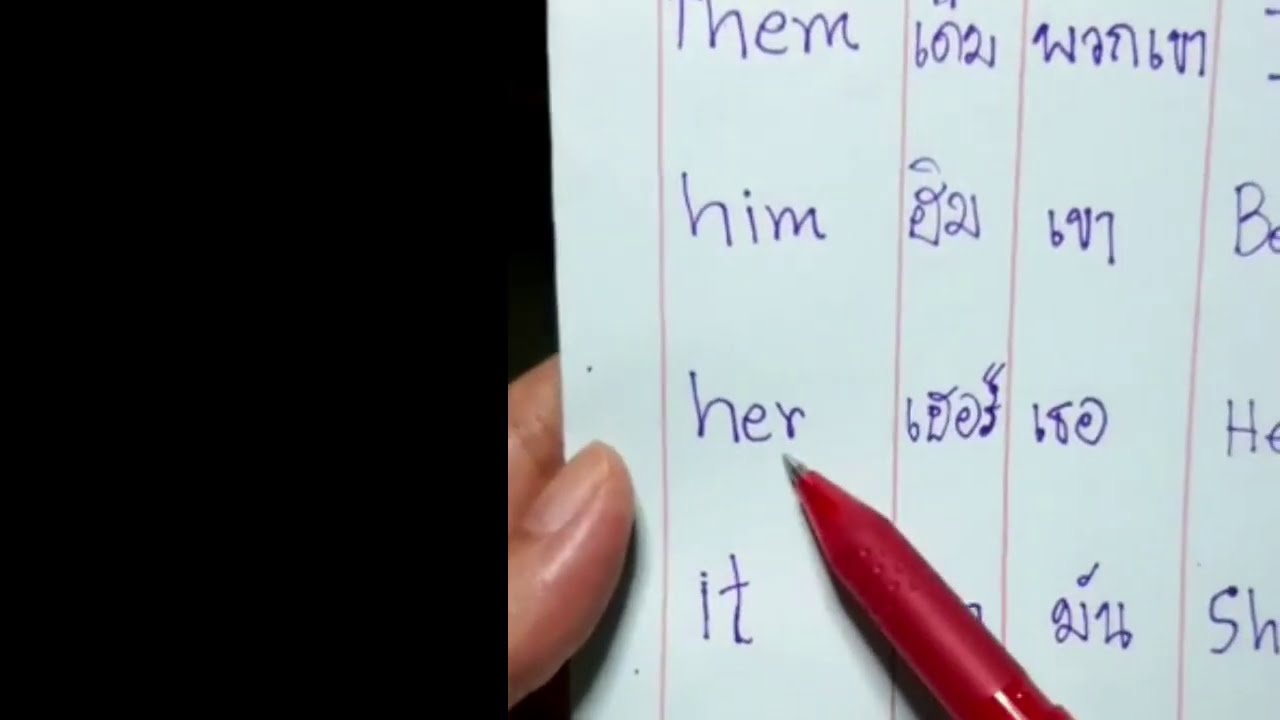 Them เด็ม พวกเขา
him ฮิม เขา
her เฮอร์ เธอ
it มัน